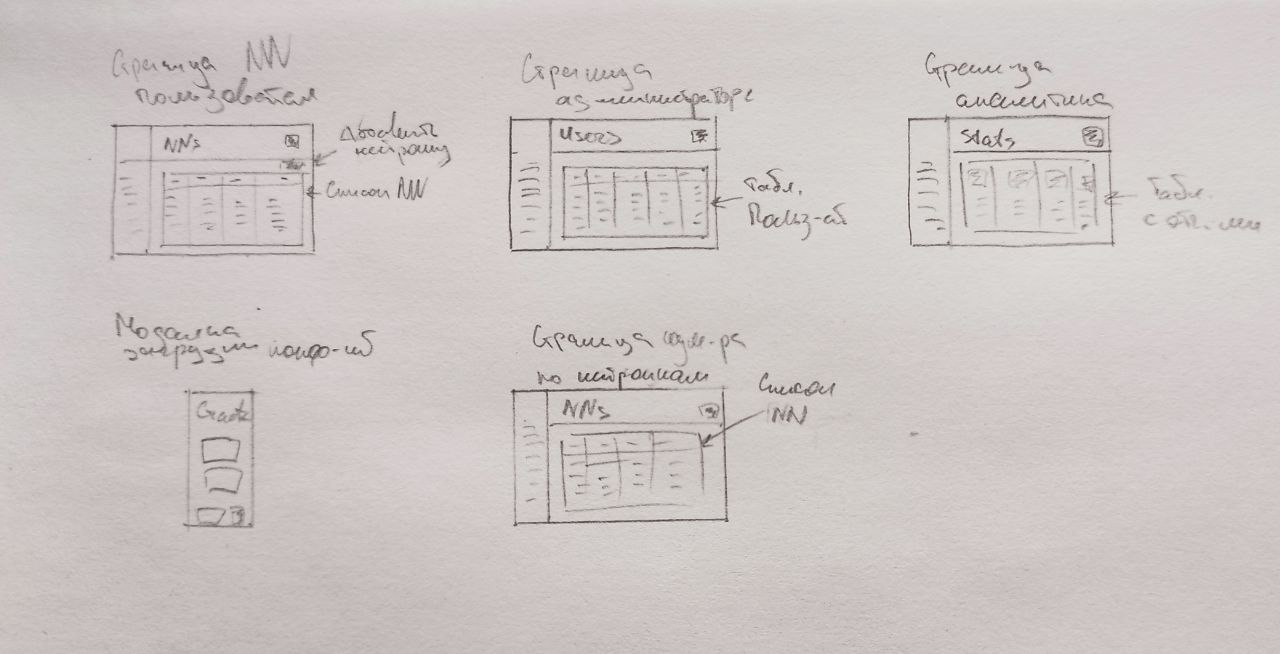 Страница NN
пользователя
NNs
Добавить
нейронку
Список NN
Страница
администратора
Users
Табл.
Польз-ей
Страница
аналитика
Stats
Табл.
с
Модалка
загрузки
Страница
по нейронкам
NNs
Список
NN